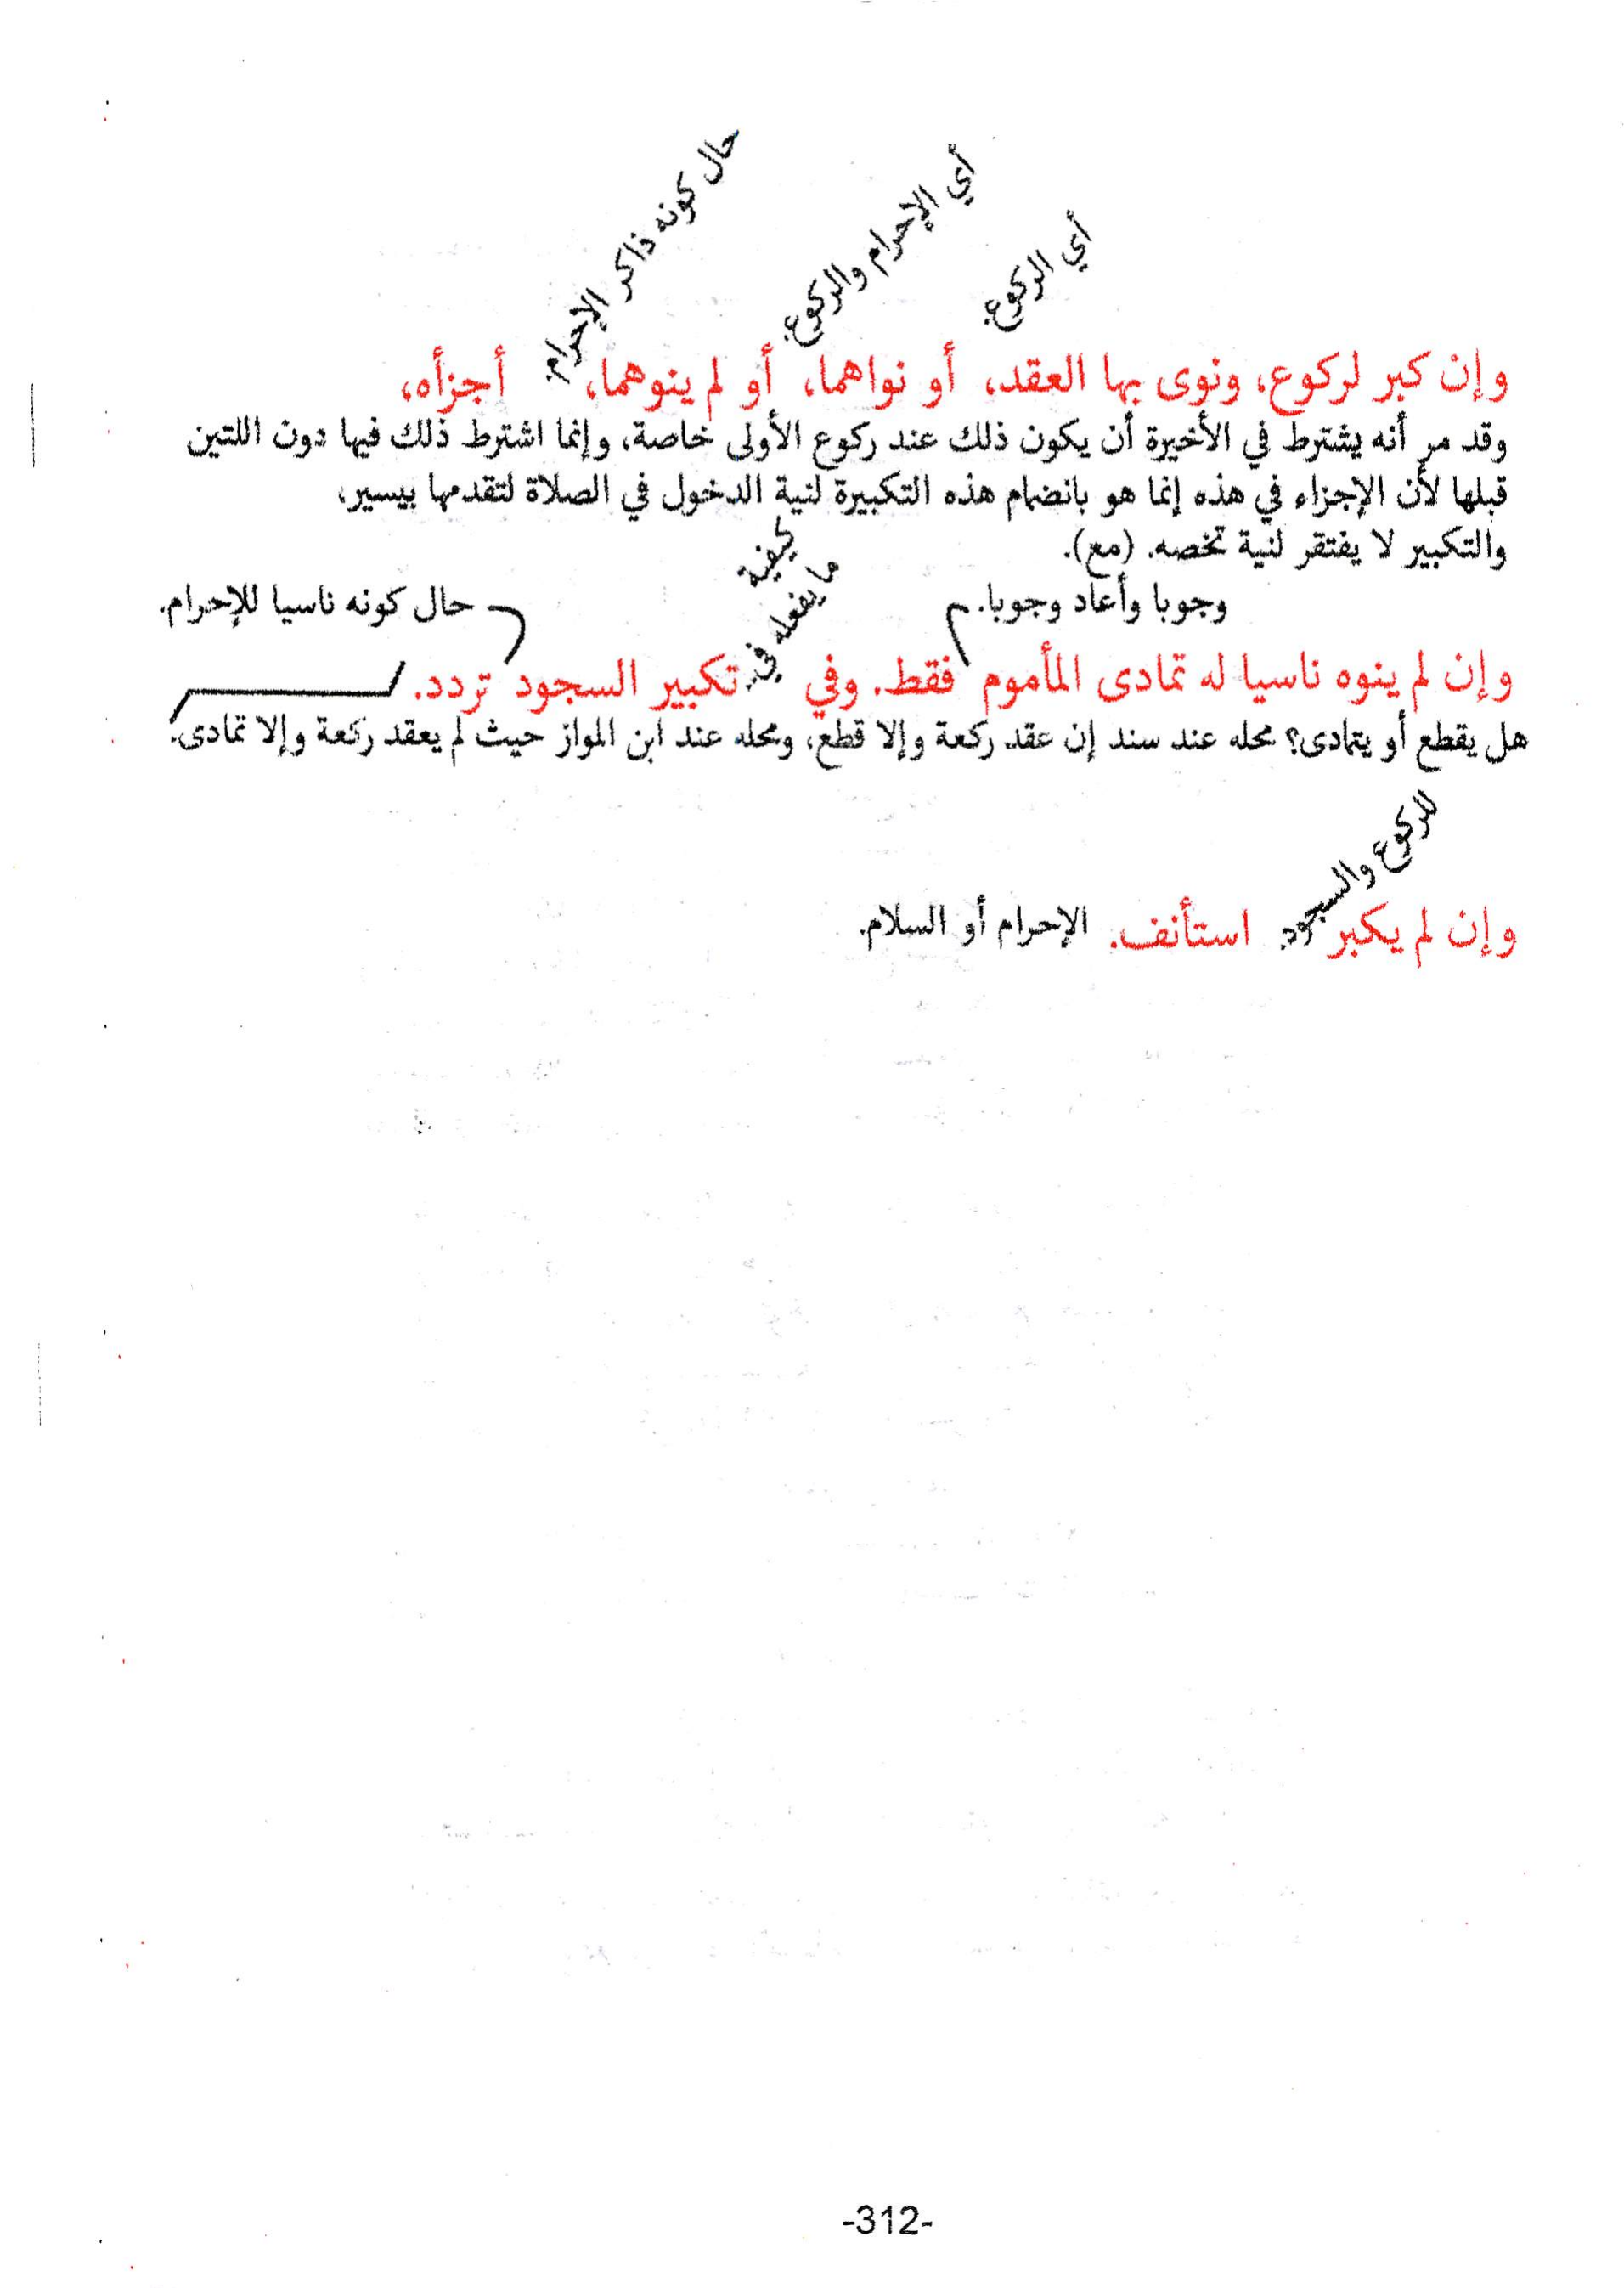 حال كونه ذاكر الإحرام.
أي الإحرام والركوع.
أي الركوع.
وإن كبر لركوع، ونوى بها العقد، أو نواهما، أو لم ينوهما، أجزأه،
وقد مر أنه يشترط في الأخيرة أن يكون ذلك عند ركوع الأولى خاصة، وإنما اشترط ذلك فيها دون اللتين
قبلها لأن الإجزاء في هذه إنما هو بانضمام هذه التكبيرة لنية الدخول في الصلاة لتقدمها بيسير،
والتكبير لا يفتقر لنية تخصه. (مع).
كيفية
ما يفعله في..
وجوبا وأعاد وجوبا.
حال كونه ناسيا للإحرام.
وإن لم ينوه ناسيا له تمادى المأموم فقط. وفي تكبير السجود تردد.
هل يقطع أو يتمادى؟ محله عند سند إن عقد ركعة وإلا قطع، ومحله عند ابن المواز حيث لم يعقد ركعة وإلا تمادى.
للركوع والسجود.
وإن لم يكبر استأنف. الإحرام أو السلام.
-312-